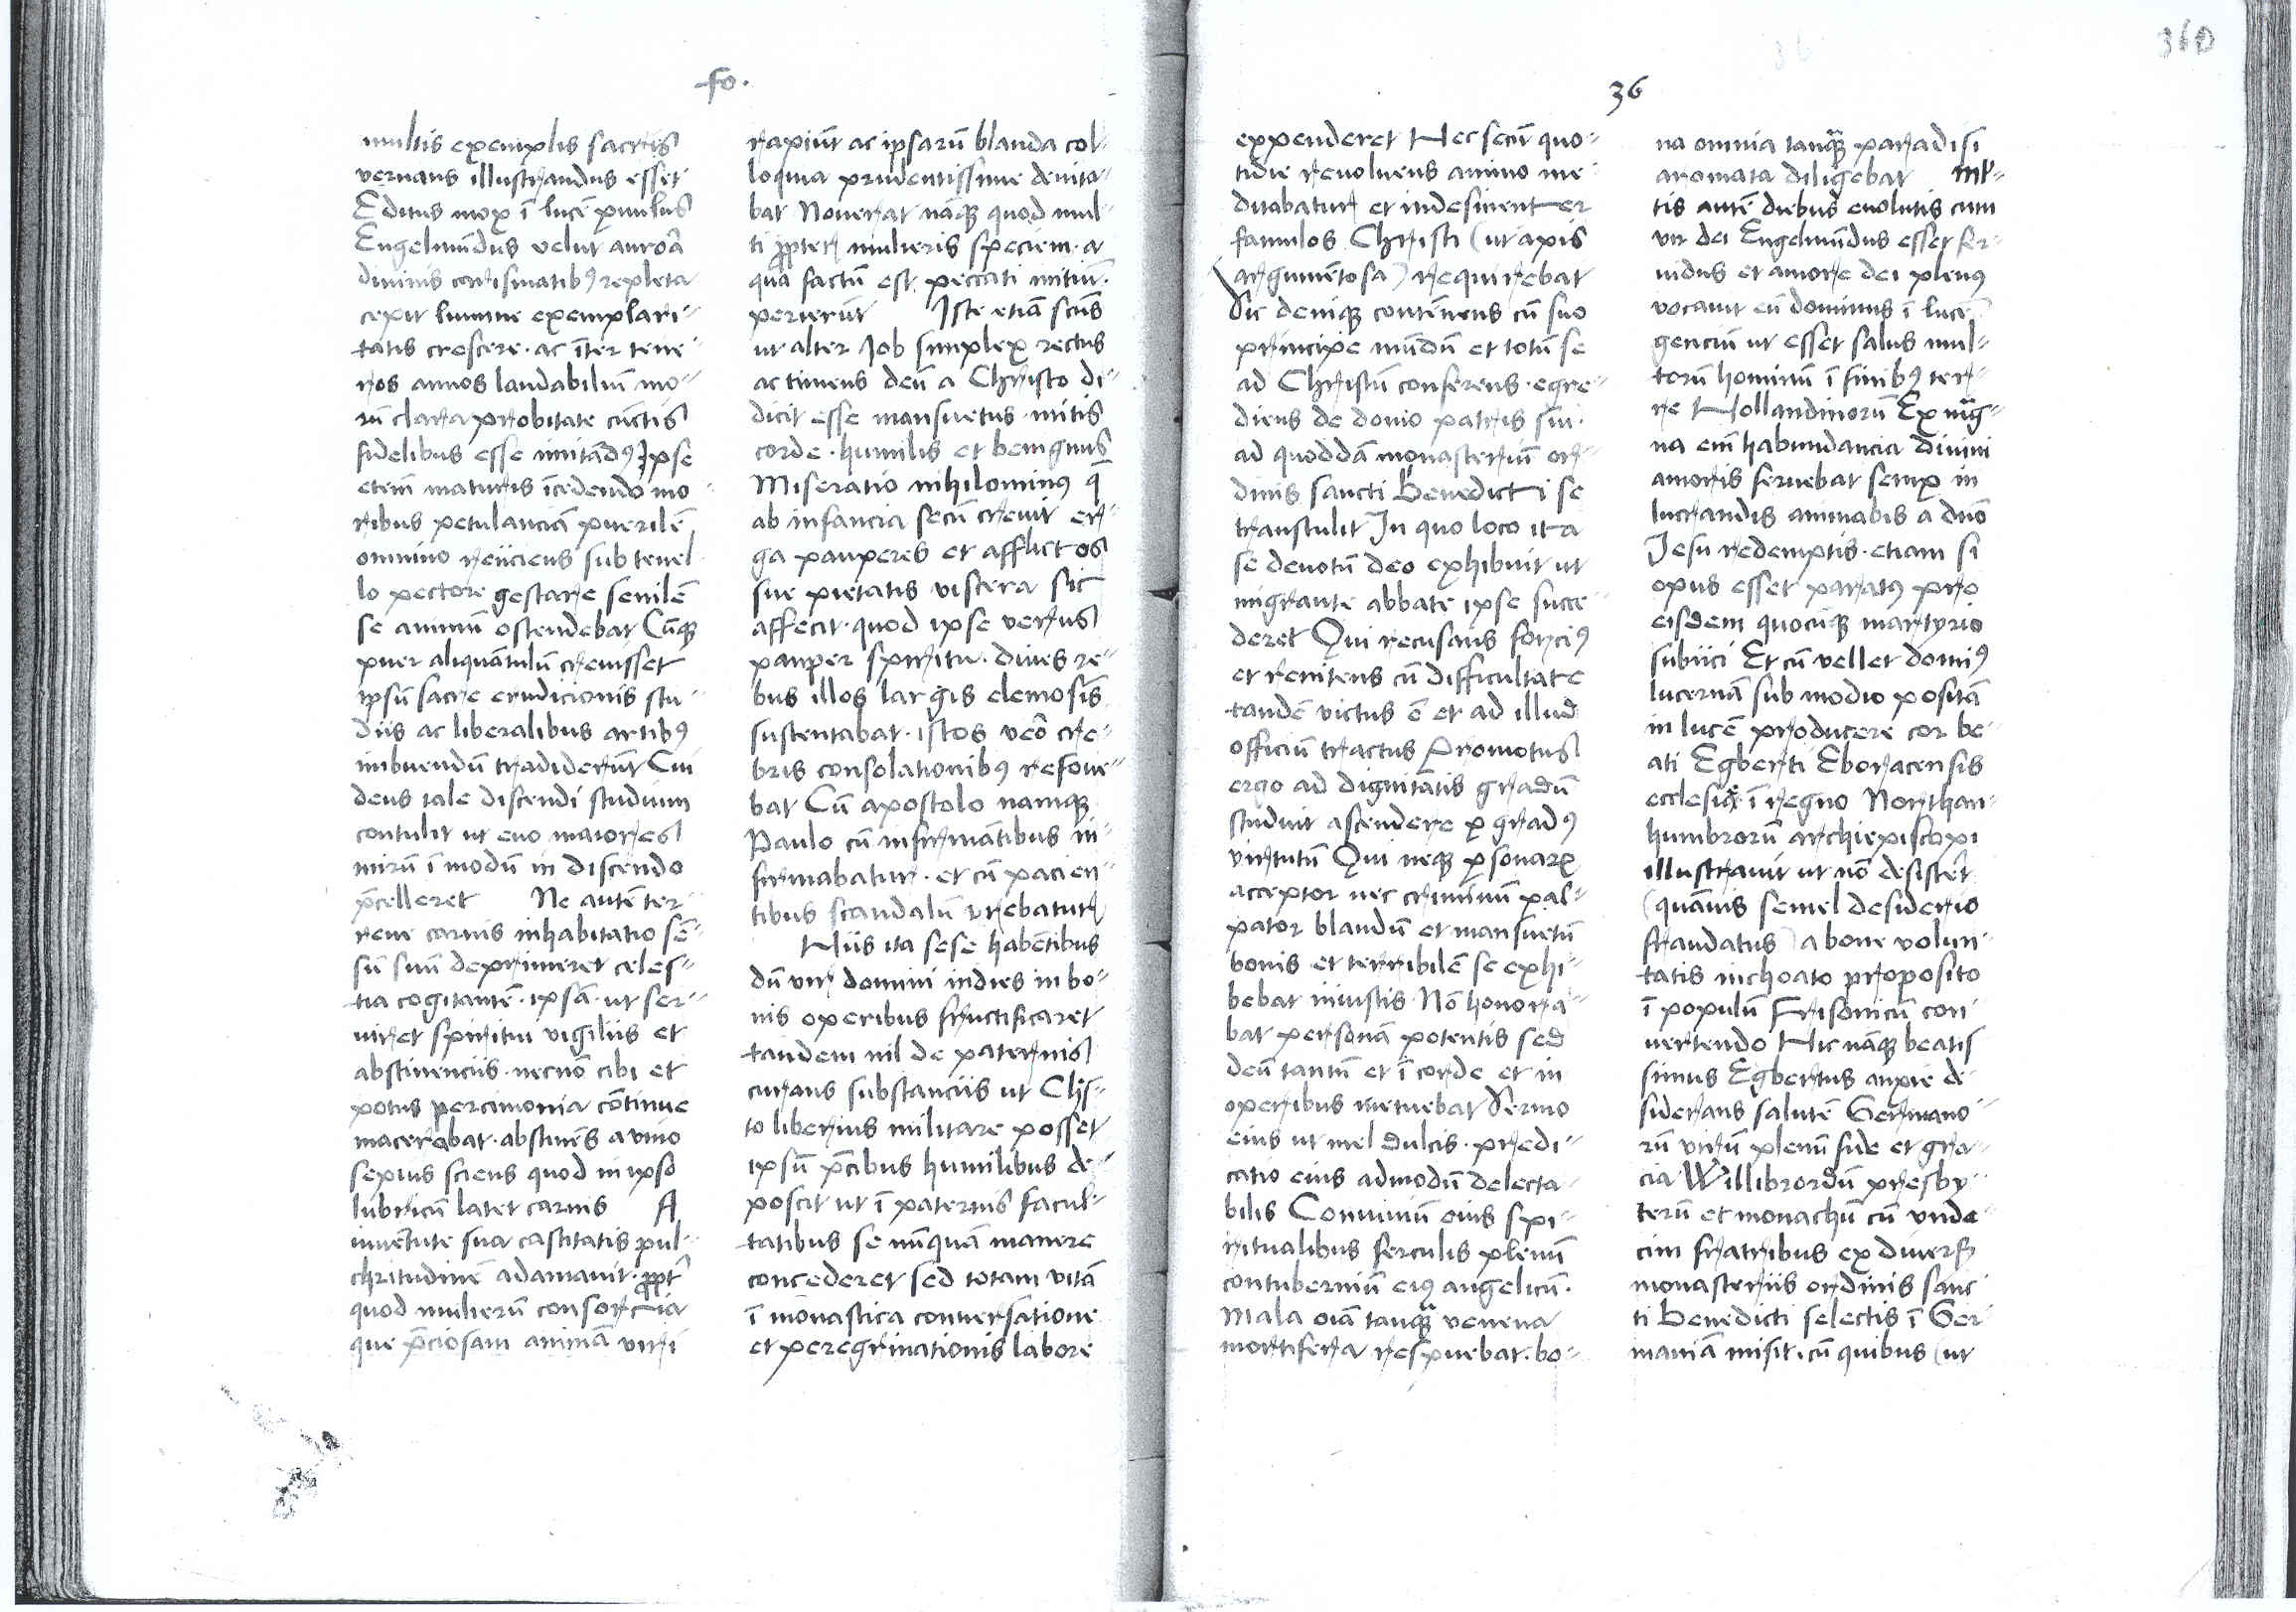 fo.
multis exemplis sacris
vernans illustrandus esset
Editus mox ī lucē ꝑvulus
Engelmūdus velut aurora
divinis carismatibꝰ repleta
cepit lumine exemplari-
tatis crescere · ac īter tene-
ros annos laudabiliū mo-
rū clara probitate cūctis
fidelibus esse imitādꝰ Ipse
etenī maturis īcedendo mo-
ribus petulanciā puerilē
omnino reiiciens sub tenel-
lo pectore gestare senilē
se animū ostendebat Cūqꝫ
puer aliquātulū crevisset
ipsū sacre erudicionis stu-
diis ac liberalibus artibꝰ
imbuendū tradiderūt Cui
deus tale discendi studium
contulit ut evo maiores
mirū ī modū in discendo
p̄celleret Ne autē ter-
rene carnis inhabitatio sē-
sū suū deprimeret celes-
tia cogitantē · ipsā · ut ser-
viret spiritui vigiliis et
abstinenciis · necnō cibi et
potus percimonia cōtinue
macerabat · abstinēs a vino
sepius sciens quod in ipso
lubricū latet carnis A
iuvētute sua castitatis pul-
chritudinē adamavit · ꝓpt̄
quod mulierū consorcia
que p̄ciosam animā viri
rapiūt ac ipsarū blanda col-
loquia prudentissime devita-
bat Noverat nāqꝫ quod mul-
ti ꝓpter mulieris speciem · a
qua factū est peccati initiū ·
perierūt Iste etiā scūs
ut alter Job simplex rectus
ac timens deū a Christo di-
dicit esse mansuetus · mitis
corde · humilis et benignus
Miseratio nihilominꝰ q̄
ab infancia secū crevit er-
ga pauperes et afflictos
sue pietatis viscera sic
affecit · quod ipse verus
pauper spiritu · dives re-
bus illos largis elemosis
sustentabat · istos vero cre-
bris consolationibꝰ refove-
bat Cū apostolo namqꝫ
Paulo cū infirmātibus in-
firmabatur · et cū pacien-
tibus scandalū urebatur
Hiis ita sese habētibus
dū vir domini indies in bo-
nis operibus fructificaret
tandem nil de paternis
curans substanciis ut Chr̄s-
to liberius militare posset
ipsū p̄cibus humilibus de-
poscit ut ī paternis facul-
tatibus se nūquā manere
concederet sed totam vitā
ī monastica conversatione
et peregrinationis labore
36
360
expenderet Hec secū quo-
tidie revolvens animo me-
ditabatur et indesinenter
famulos Christi (ut apis
argumētosa) requirebat
Sic deniqꝫ contēnens cū suo
principe mūdū et totū se
ad Christū conferens · egre-
diens de domo patris sui ·
ad quoddā monasteriū or-
dinis sancti Benedicti se
transtulit In quo loco ita
se devotū deo exhibuit ut
migrante abbate ipse succe-
deret Qui recusans forciꝰ
et renitens cū difficultate
tandē victus ē et ad illud
officiū tractus Promotus
ergo ad dignitatis gradū
studuit ascendere ꝑ gradꝰ
virtutū Qui neqꝫ ꝑsonarꝝ
acceptor nec criminū pal-
pator blandū et mansuetū
bonis et terribilē se exhi-
bebat iniustis Nō honora-
bat personā potentis sed
deū tantū et ī corde et in
operibus metuebat Sermo
eius ut mel dulcis · predi-
catio eius admodū delecta-
bilis Conviviū eius spi-
ritualibus ferculis plenū
contuberniū eiꝰ angelicū ·
Mala oīa tanqꝫ venena
mortifera respuebat · bo-
na omnia tanqꝫ paradisi
aromata diligebat Ml̄-
tis autē diebus evolutis cum
vir dei Engelmūdus esset fer-
vidus et amore dei plenꝰ
vocavit eū dominus ī lucē
genciū ut esset salus mul-
torū hominū ī finibꝰ ter-
re Hollandinorū Ex mag-
na enī habundancia divini
amoris fervebat semꝑ in
lucrandis animabis a dnō
Iesu redemptis · etiam si
opus esset paratꝰ pro
eisdem quocūqꝫ martyrio
subiici Et cū vellet dominꝰ
lucernā sub modio positā
in lucē producere cor be-
ati Egberti Eboracensis
ecclesię ī regno Northan-
humbrorū archiepiscopi
illustravit ut nō desisteret
(quāvis semel desiderio
fraudatus) a bone volun-
tatis inchoato proposito
ī populū Frisonicū con-
vertendo Hic nāqꝫ beatis-
simus Egbertus anxie de-
siderans salutē Germano-
rū virū plenū fide et gra-
cia Willibrordū presby-
terū et monachū cū unde-
cim fratribus ex diversis
monasteriis ordinis sanc-
ti Benedicti selectis ī Ger-
maniā misit · cū quibus (ut